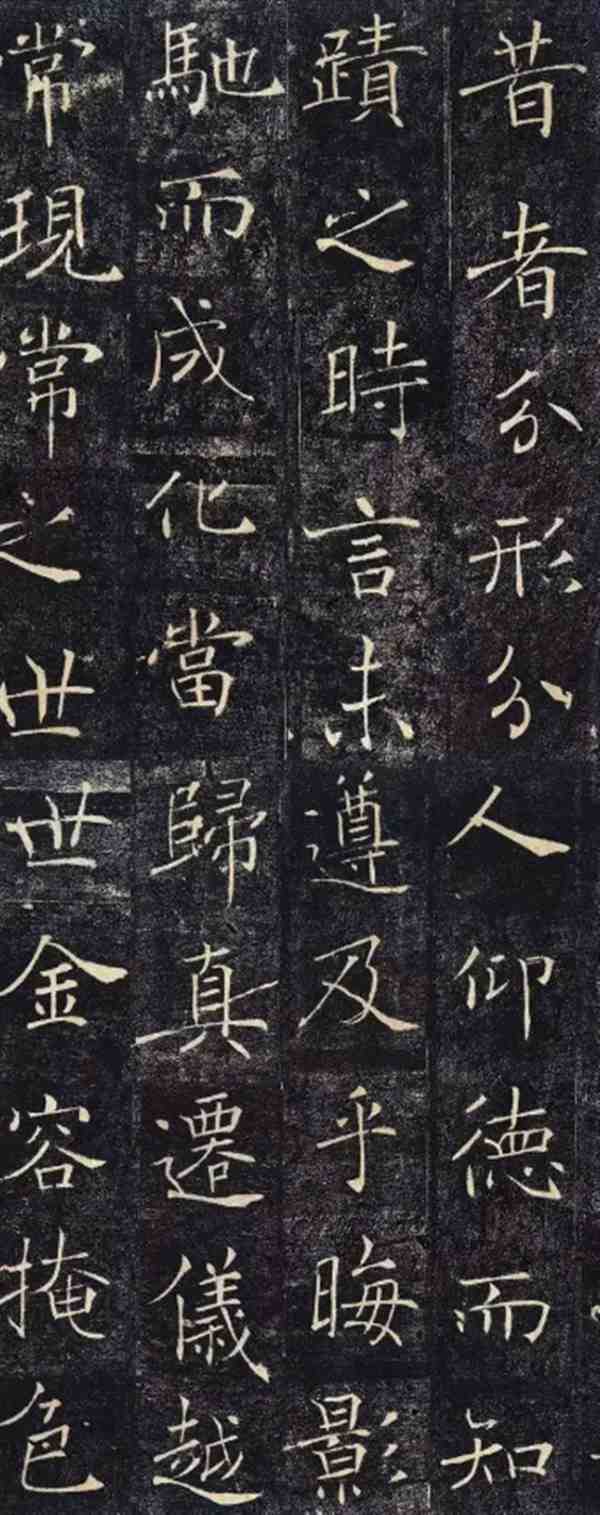 昔者分形分人仰德而知
蹟之時言未遵及乎晦影
馳而成化當歸真遷儀越
常現常之世世金容掩色